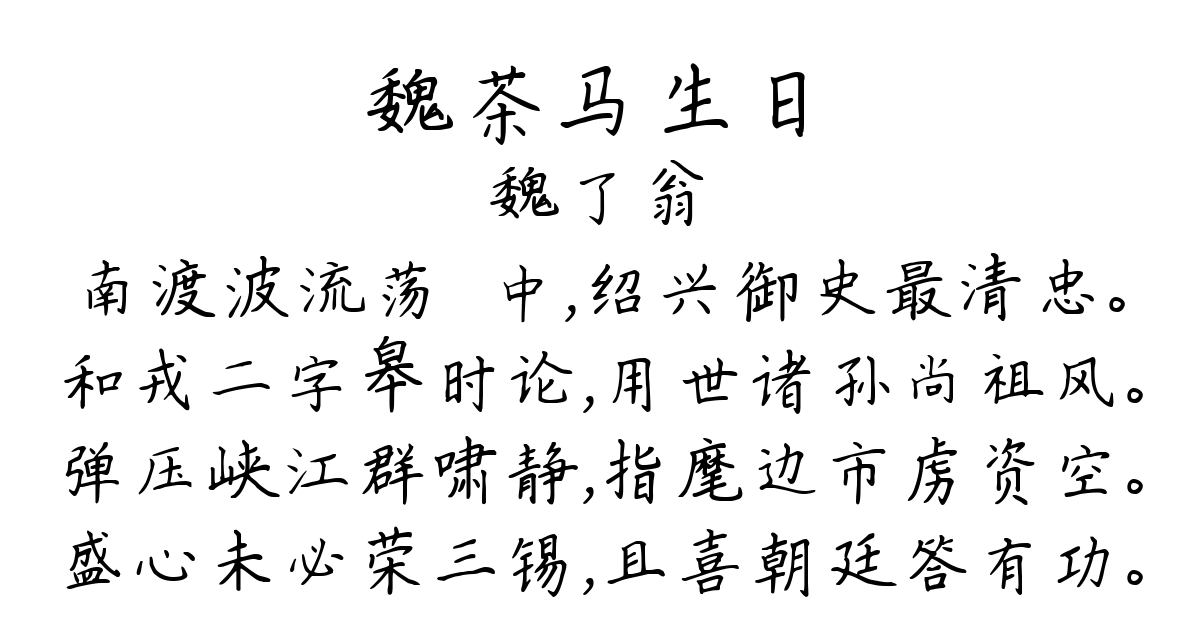 魏茶马生日
魏了翁
南渡波流荡 中,绍兴御史最清忠。
和戎二字皋时论,用世诸孙尚祖风。
弹压峡江群啸静,指麾边市虏资空。
盛心未必荣三锡,且喜朝廷答有功。